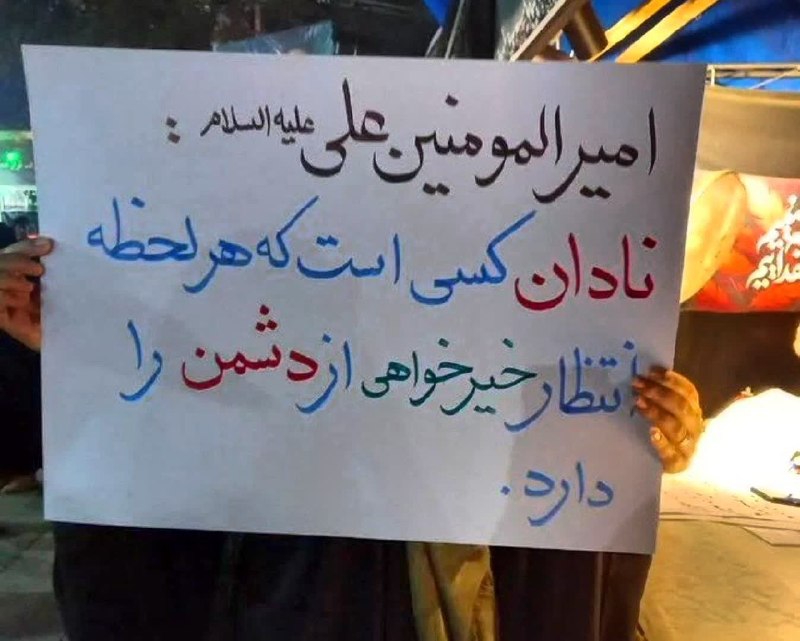 امیرالمومنین علی علیه السلام :
نادان کسی است که هر لحظه
انتظار خیرخواهی از دشمن را
دارد.